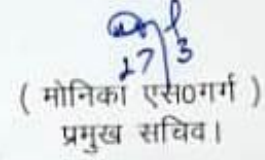 27/3
( मोनिका एस0गर्ग )
प्रमुख सचिव।